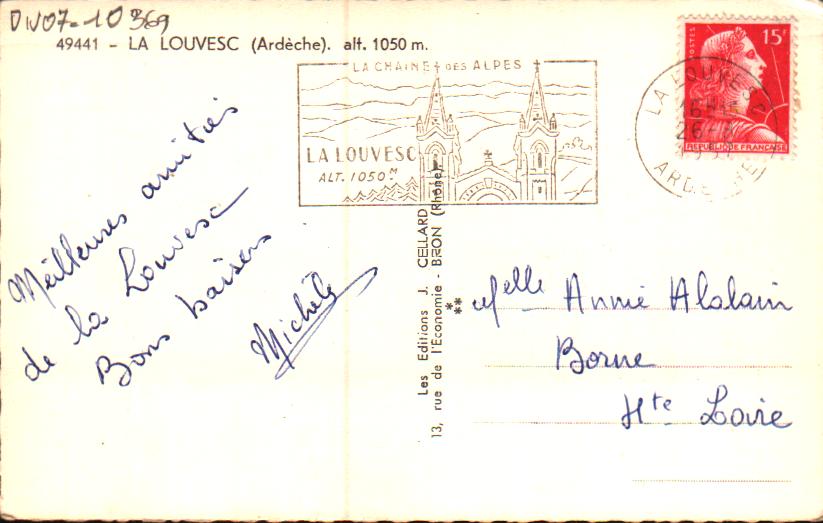 DIV07-10369
49441 - LA LOUVESC (Ardèche). alt. 1050 m.
LA CHAINE DES ALPES
LA LOUVESC
ALT. 1050 M
POSTES
15F
REPUBLIQUE FRANÇAISE
LA LOUVESC
16H
26
ARDECHE
Meilleures amitiés
de la Louvesc
Bons baisers
Michèle
Les Editions J. CELLARD
13, rue de l'Economie - BRON (Rhône)
*
**
Melle Annie Alalain
Borne
Hte Loire